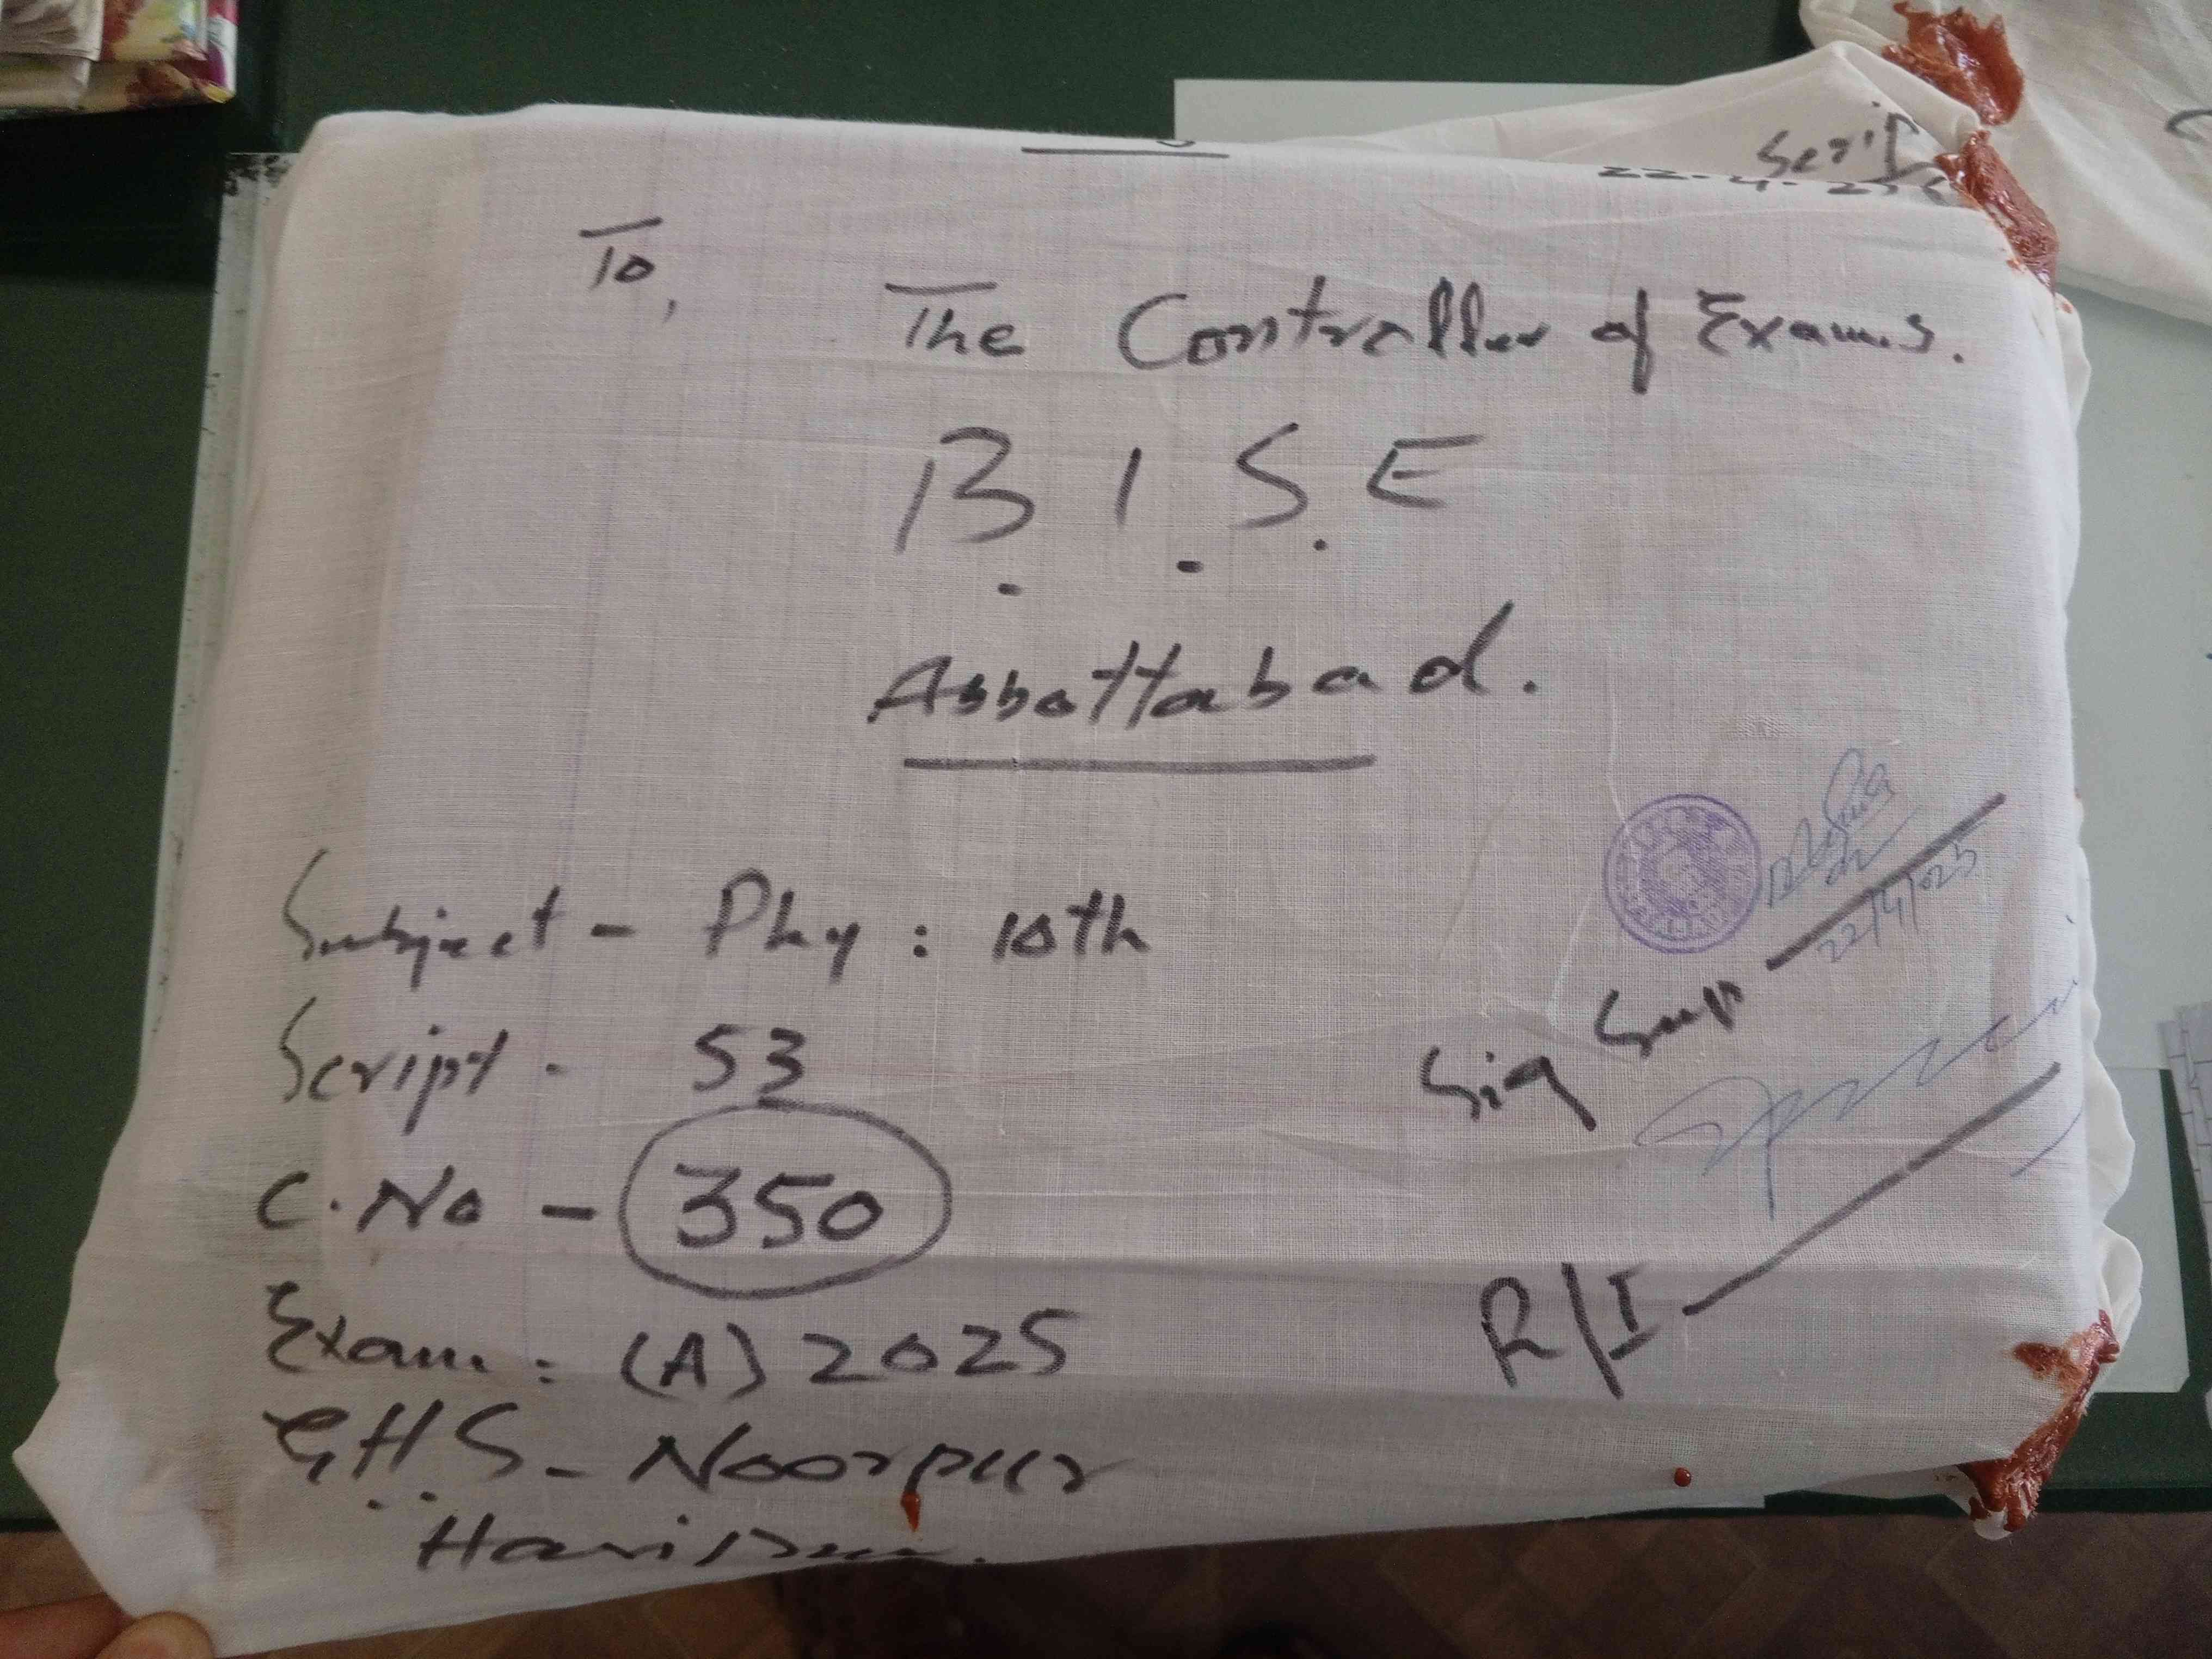 To,
The Controller of Exams.
B.I.S.E
Abbottabad.
Subject - Phy : 10th
Script - 53
C.No - 350
Exam : (A) 2025
G.H.S - Noorpur
Haripur.
22/4/025
Sig Sup
R/I
22-4-25